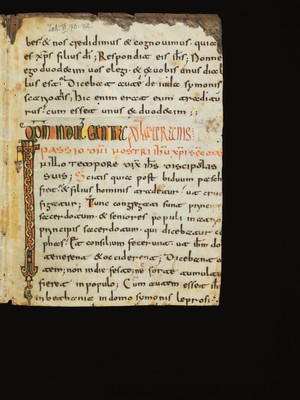 bes & nos credidimus & cognouimus quia
es xp̄s filius dī; Respondit eis ihs; Nonne
ego duodecim uos elegi & ex uobis unus diabo
lus est; Dicebat autem de iuda symonis
Hic enim erat eum traditu
rus. cum esset unus ex duodecim;
Passio dn̄i nostri ihu xp̄i
illo tempore dix̄ ihs discipulos
suis; Scitis quia post biduum pasch
fiet & filius hominis tradetur ut cruci
figatur; Tunc congregati sunt princi
sacerdotum & seniores populi in atrio
principis sacerdotum. qui dicebatur
phas; Et consilium fecerunt ut ihm do
tenerent & occiderent; Dicebant
autem; non in die festo. ne forte tumultu
fieret in populo; Cum autem esset ih
in bethania in domo symonis leprosi